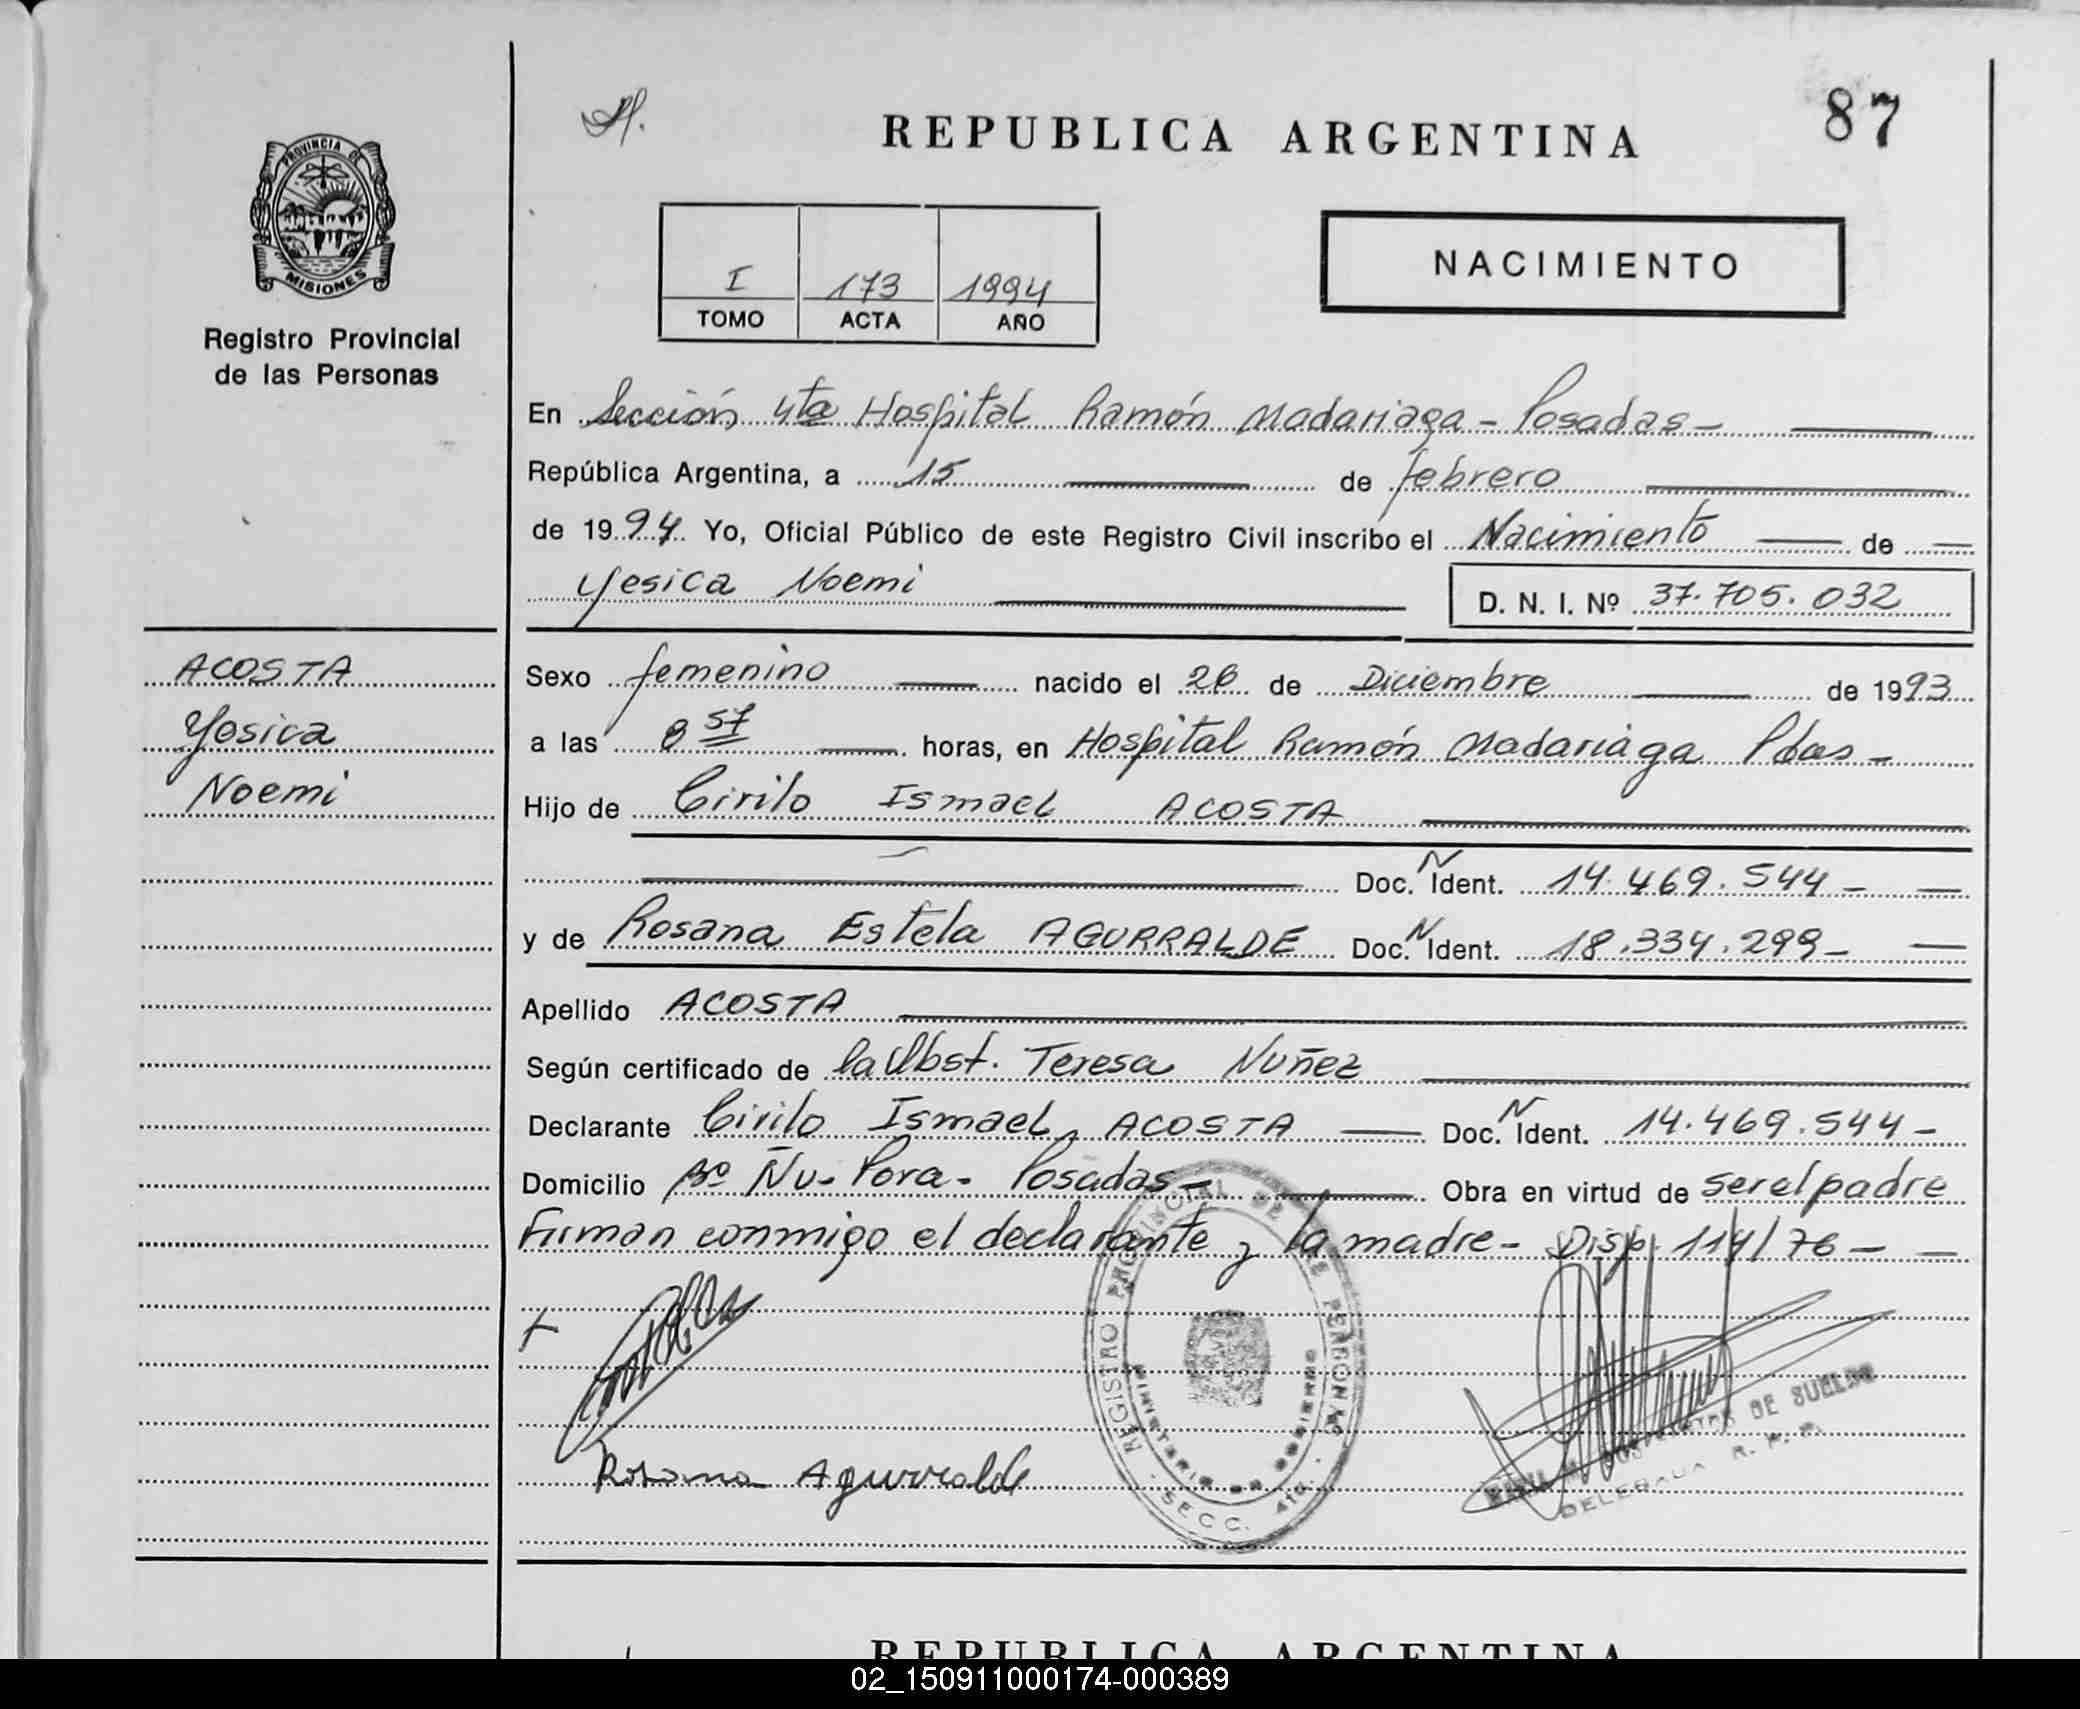 87
REPUBLICA ARGENTINA
PROVINCIA DE
MISIONES
Registro Provincial
de las Personas
I 173 1994
TOMO ACTA AÑO
NACIMIENTO
En Sección 4ta Hospital Ramón Madariaga - Posadas -
República Argentina, a 15 de febrero
de 1994 Yo, Oficial Público de este Registro Civil inscribo el Nacimiento de
Yesica Noemi D. N. I. Nº 37.705.032
ACOSTA
Yesica
Noemi
Sexo femenino nacido el 26 de Diciembre de 1993
a las 8 57 horas, en Hospital Ramón Madariaga Pdas -
Hijo de Cirilo Ismael ACOSTA
Doc. N Ident. 14.469.544 -
y de Rosana Estela AGURRALDE Doc. N Ident. 18.334.299 -
Apellido ACOSTA
Según certificado de la Obst. Teresa Nuñez
Declarante Cirilo Ismael ACOSTA Doc. N Ident. 14.469.544 -
Domicilio Bº Ñu - Pora - Posadas - Obra en virtud de ser el padre
Firman conmigo el declarante y la madre - Disp. 114/76 -
REGISTRO PROVINCIAL DE LAS PERSONAS
MINISTERIO DE GOBIERNO
SECC. 4ta.
Rosana Agurralde
DE SUELDO
DELEGADA R. P. P.
REPUBLICA ARGENTINA
02_150911000174-000389